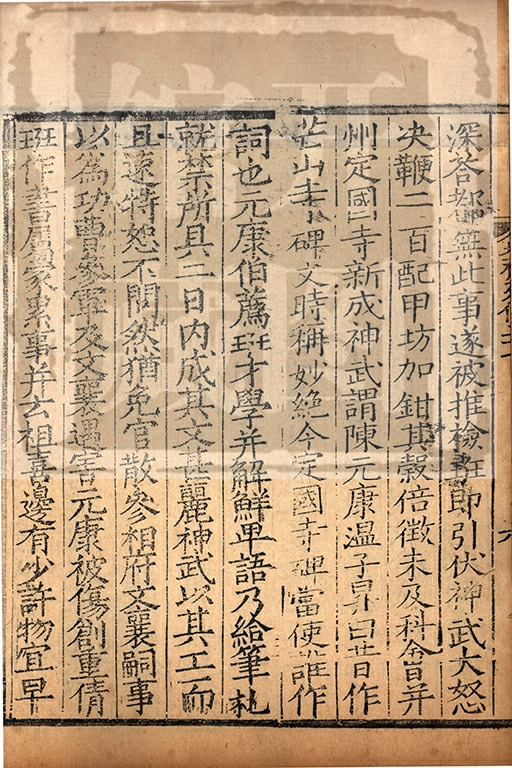 深荅都無此事遂被推檢珽即引伏神武大怒
决鞭二百配甲坊加鉗其穀倍徵未及科會并
州定國寺新成神武謂陳元康溫子昇曰昔作
芒山寺碑文時稱妙絕今定國寺碑當使誰作
詞也元康伯薦珽才學并解鮮卑語乃給筆札
就禁所具二日内成其文甚麗神武以其工而
且速特恕不問然猶免官散參相府文襄嗣事
以爲功曹參軍及文襄遇害元康被傷創重倩
珽作書屬家累事并云相喜邊有少許物宜早